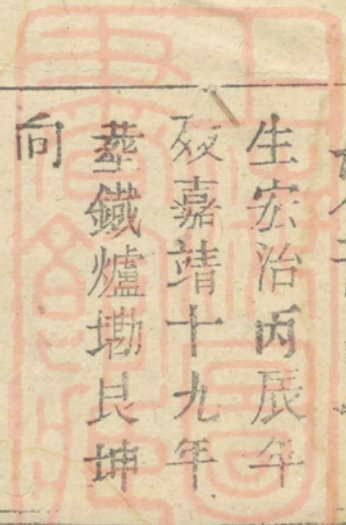 生宏治丙辰年
歿嘉靖十九年
塟鐵爐墈艮坤
向